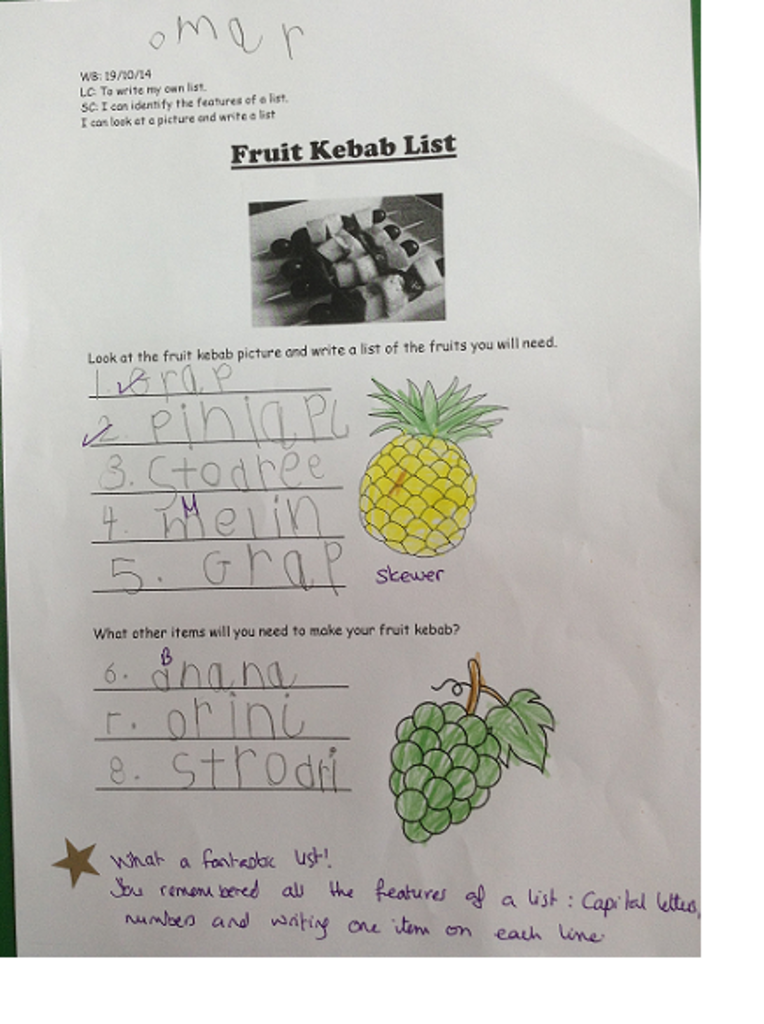 omar
WB: 19/10/14
LC: To write my own list.
SC: I can identify the features of a list.
I can look at a picture and write a list
Fruit Kebab List
Look at the fruit kebab picture and write a list of the fruits you will need.
1. Grap
2. Piniapl
3. Stodree
4. Melin
5. Grap
Skewer
What other items will you need to make your fruit kebab?
6. Bnana
7. orini
8. strodri
What a fantastic list!
You remembered all the features of a list: Capital letters,
numbers and writing one item on each line.